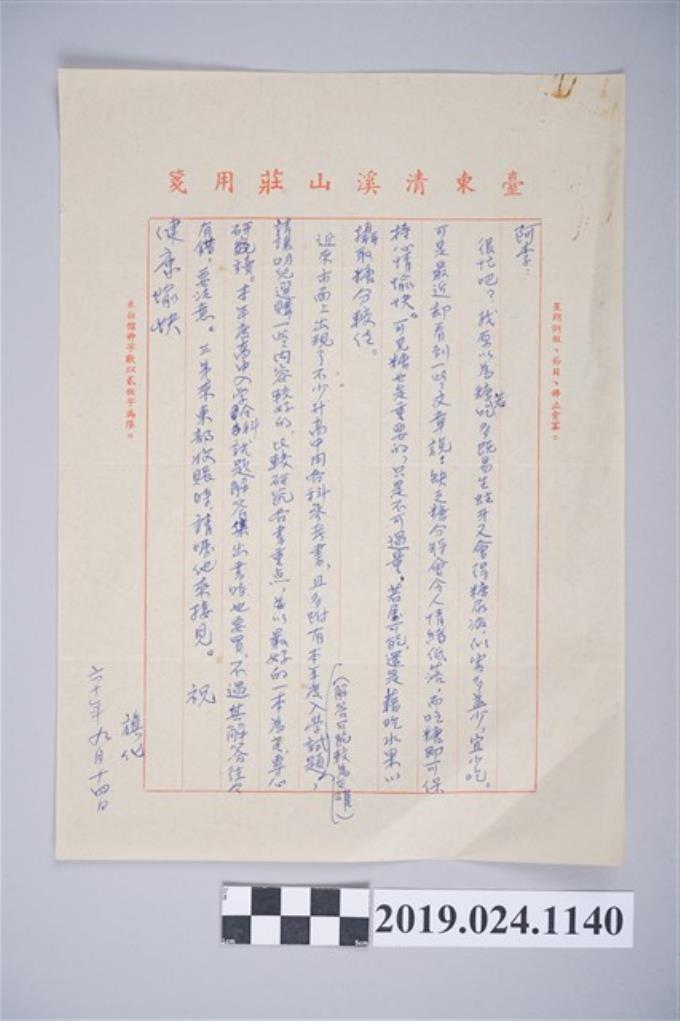 臺東清溪山莊用箋
星期例假、節目、停止會客。
阿李：
很忙吧？我原以為糖若吃多既易生蛀牙又會得糖尿病，似害多益少，宜少吃。
可是最近却看到一些文章說：缺乏糖分將會令人情緒低落，而吃糖即可保
持心情愉快。可見糖也是重要的，只是不可過量。若屬可能，還是藉吃水果以
攝取糖分較佳。
近來市面上出現了不少升高中用各科參考書，且多附有本年度入學試題，
（解答可能較為正確）
請讓明兒選購一些內容較好的，比較研究各書重点，並以最好的一本為主，專心
研讀。本年考高中入學各科試題解答集出書時也要買，不過其解答往々
有錯，要注意。三弟來東部收賬時，請囑他來接見。 祝
健康愉快
旗化
六十年九月十四日
來往信件字數以貳佰字為限。
2019.024.1140